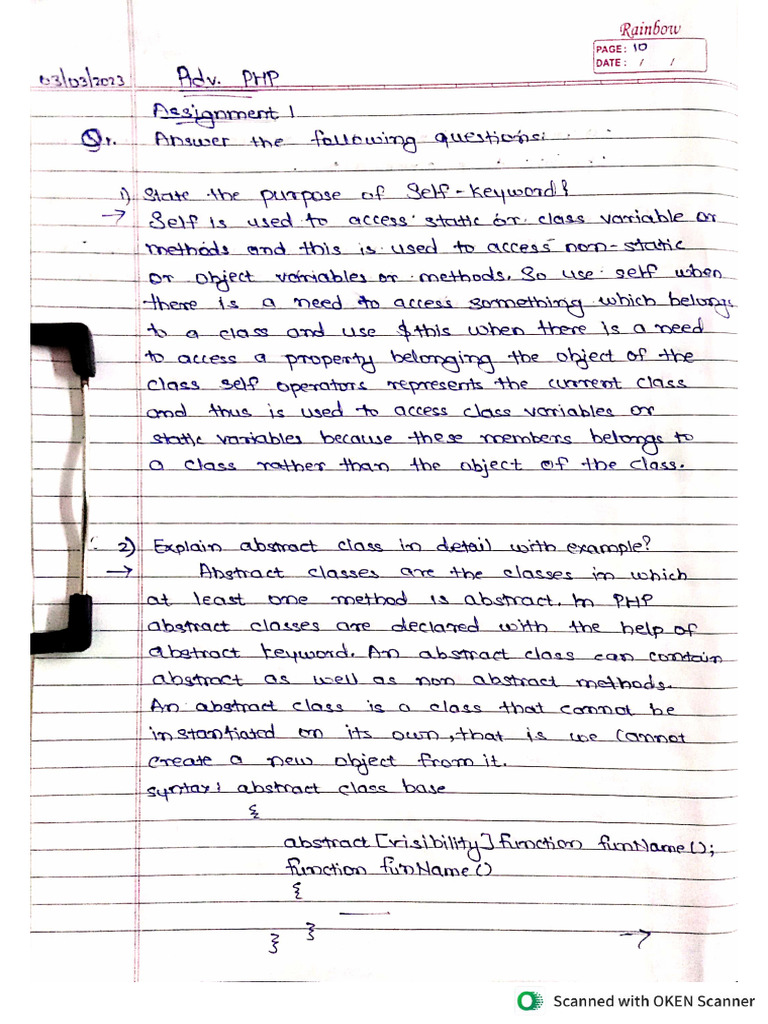 Rainbow
PAGE: 10
DATE: / /
03/03/2023 Adv. PHP
Assignment 1
Q1. Answer the following questions:
1) State the purpose of Self-keyword?
→ Self is used to access static or class variable or
methods and this is used to access non-static
or object variables or methods. So use self when
there is a need to access something which belongs
to a class and use $this when there is a need
to access a property belonging the object of the
class self operators represents the current class
and thus is used to access class variables or
static variables because these members belongs to
a class rather than the object of the class.
2) Explain abstract class in detail with example?
→ Abstract classes are the classes in which
at least one method is abstract. In PHP
abstract classes are declared with the help of
abstract keyword. An abstract class can contain
abstract as well as non abstract methods.
An abstract class is a class that cannot be
instantiated on its own, that is we cannot
create a new object from it.
syntax: abstract class base
{
abstract [visibility] function funName();
function funName()
{
}
} →
Scanned with OKEN Scanner